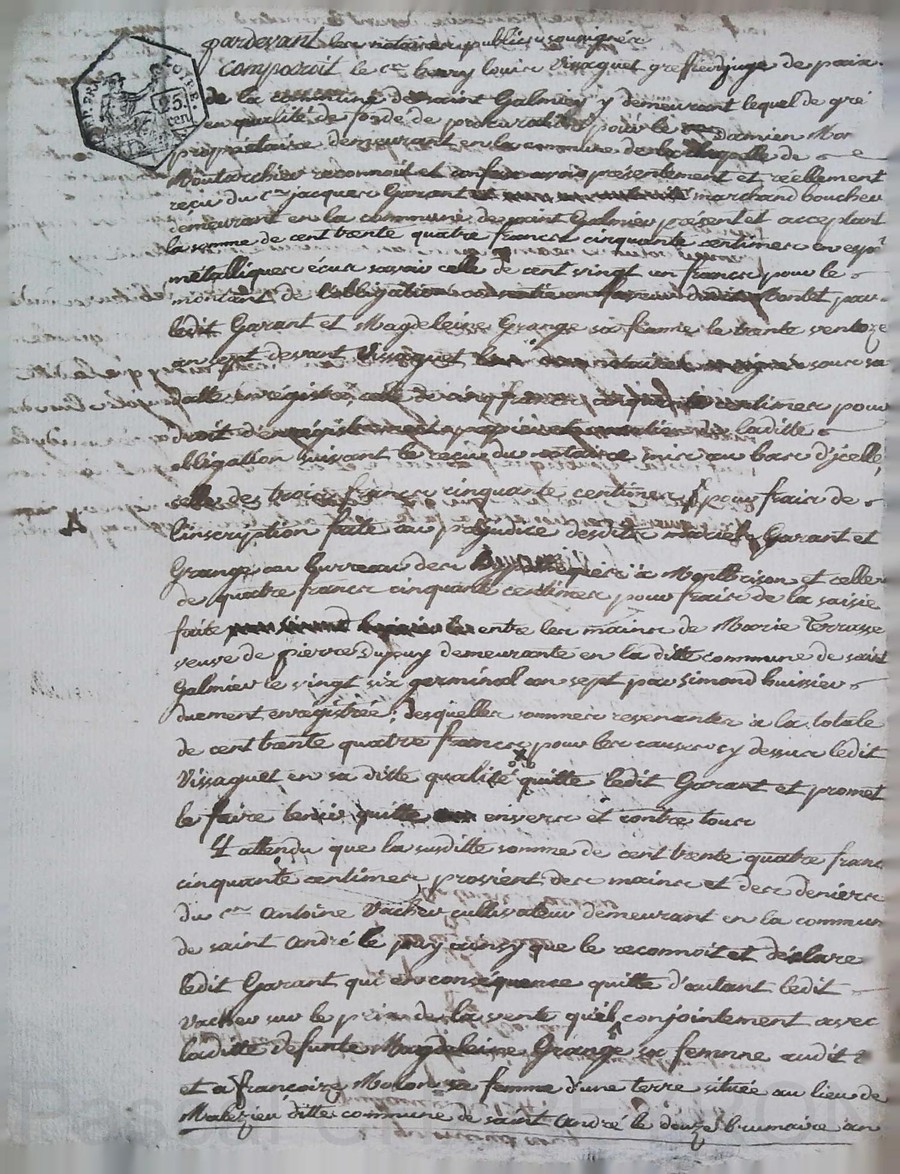 pardevant les notaires publics soussignés
comparoit le cen henry louis Vissaguet greffier du juge de paix
de la commune de saint Galmier y demeurant lequel de gré
en qualité de de procuration pour le damien
proprietaire demeurant en la commune de la Chapelle de
Montarchier reconnoit et confesse avoir présentement et réellement
reçu du cen jacques Garant marchand boucher
demeurant en la commune de saint Galmier présent et acceptant
la somme de cent trente quatre francs cinquante centimes en espes
métalliques écus savoir celle de cent vingt un francs pour le
montant de l'obligation consentie en faveur dudit par
ledit Garant et Magdeleine Grange sa femme le trente ventoze
an sept devant Vissaguet notaire sous sa
datte enrégistré, celle de cinq francs centimes pour
droit d'enregistrement papier et de laditte
obligation suivant le reçu du notaire mis au bas d'jcelle,
celle des trois francs cinquante centimes pour frais de
l'inscription faitte au préjudice desdits mariés Garant et
Grange au burreau des hypothèques à Montbrison et celle
de quatre francs cinquante centimes pour frais de la saisie
faite entre les mains de Marie Terrasse
veuve de pierre Dupuy demeurante en la ditte commune de saint
Galmier le vingt six germinal an sept par Simond huissier
duement enregistrée; desquelles sommes revenantes à la totale
de cent trente quatre francs pour les causes cy dessus ledit
Vissaguet en sa ditte qualité quitte ledit Garant et promet
le faire tenir quitte envers et contre tous
Et attendu que la susditte somme de cent trente quatre francs
cinquante centimes provient des mains et des deniers
du cen Antoine Vacher cultivateur demeurant en la commune
de saint André le puy ainsy que le reconnoit et déclare
ledit Garant qui en conséquence quitte d'autant ledit
Vacher sur le prix de la vente qu'il conjointement avec
laditte défunte Magdeleine Grange sa femme audit
et a françoise sa femme d'une terre située au lieu de
ditte commune de saint André le douze brumaire an
25.
cen